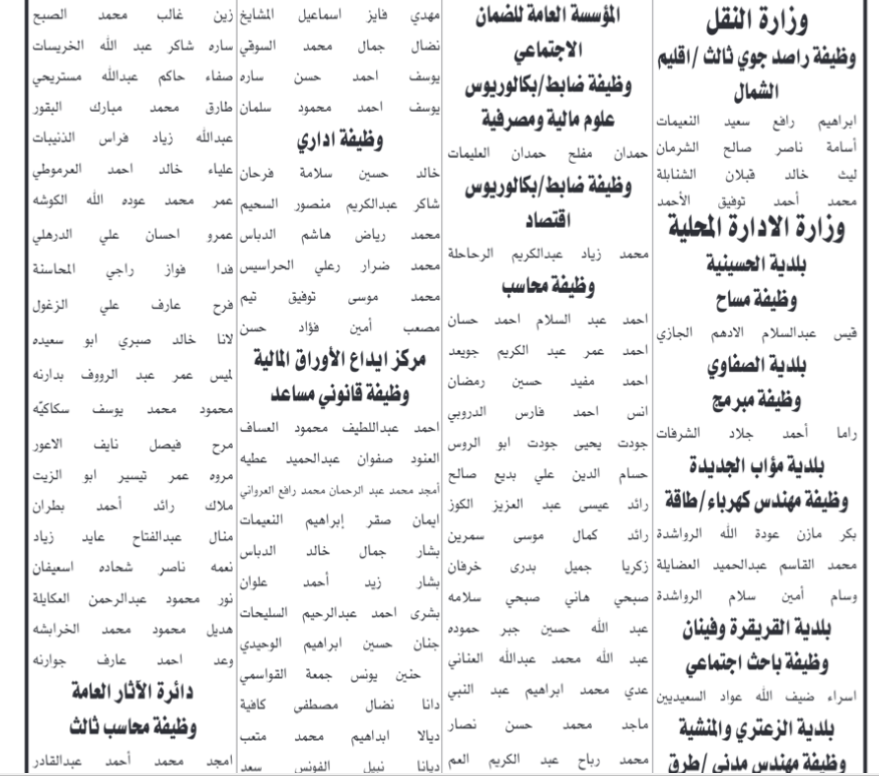 وزارة النقل
وظيفة راصد جوي ثالث /اقليم
الشمال
ابراهيم رافع سعيد النعيمات
أسامة ناصر صالح الشرمان
ليث خالد قبلان الشنابلة
محمد أحمد توفيق الأحمد
وزارة الادارة المحلية
بلدية الحسينية
وظيفة مساح
قيس عبدالسلام الادهم الجازي
بلدية الصفاوي
وظيفة مبرمج
راما أحمد جلاد الشرفات
بلدية مؤاب الجديدة
وظيفة مهندس كهرباء/طاقة
بكر مازن عودة الله الرواشدة
محمد القاسم عبدالحميد العضايلة
وسام أمين سلام الرواشدة
بلدية القريقرة وفينان
وظيفة باحث اجتماعي
اسراء ضيف الله عواد السعيديين
بلدية الزعتري والمنشية
وظيفة مهندس مدني /طرق
المؤسسة العامة للضمان
الاجتماعي
وظيفة ضابط/بكالوريوس
علوم مالية ومصرفية
حمدان مفلح حمدان العليمات
وظيفة ضابط/بكالوريوس
اقتصاد
محمد زياد عبدالكريم الرحاحلة
وظيفة محاسب
احمد عبد السلام احمد حسان
احمد عمر عبد الكريم جويعد
احمد مفيد حسين رمضان
انس احمد فارس الدروبي
جودت يحيى جودت ابو الروس
حسام الدين علي بديع صالح
رائد عيسى عبد العزيز الكوز
رائد كمال موسى سمرين
زكريا جميل بدرى خرفان
صبحي هاني صبحي سلامه
عبد الله حسين جبر حموده
عبد الله محمد عبدالله العناني
عدي محمد ابراهيم عبد النبي
ماجد محمد حسن نصار
محمد رباح عبد الكريم العم
مهدي فايز اسماعيل المشايخ
نضال جمال محمد السوقي
يوسف احمد حسن ساره
يوسف احمد محمود سلمان
وظيفة اداري
خالد حسين سلامة فرحان
شاكر عبدالكريم منصور السحيم
محمد رياض هاشم الدباس
محمد ضرار رعلي الحراسيس
محمد موسى توفيق تيم
مصعب أمين فؤاد حسن
مركز ايداع الأوراق المالية
وظيفة قانوني مساعد
احمد عبداللطيف محمود العساف
العنود صفوان عبدالحميد عطيه
أمجد محمد عبد الرحمان محمد رافع العرواني
ايمان صقر إبراهيم النعيمات
بشار جمال خالد الدباس
بشار زيد أحمد علوان
بشرى احمد عبدالرحيم السليحات
جنان حسين ابراهيم الوحيدي
حنين يونس جمعة القواسمي
دانا نضال مصطفى كافية
ديالا ابداهيم محمد متعب
ديانا نبيل الفونس سعد
زين غالب محمد الصبح
ساره شاكر عبد الله الخريسات
صفاء حاكم عبدالله مستريحي
طارق محمد مبارك البقور
عبدالله زياد فراس الذنيبات
علياء خالد احمد العرموطي
عمر محمد عوده الله الكوشه
عمرو احسان علي الدرهلي
فدا فواز راجي المحاسنة
فرح عارف علي الزغول
لانا خالد صبري ابو سعيده
لميس عمر عبد الرووف بدارنه
محمود محمد يوسف سكاكيّه
مرح فيصل نايف الاعور
مروه عمر تيسير ابو الزيت
ملاك رائد أحمد بطران
منال عبدالفتاح عايد زياد
نعمه ناصر شحاده اسعيفان
نور محمود عبدالرحمن العكايلة
هديل محمود محمد الخرابشه
وعد احمد عارف جوارنه
دائرة الآثار العامة
وظيفة محاسب ثالث
امجد محمد أحمد عبدالقادر